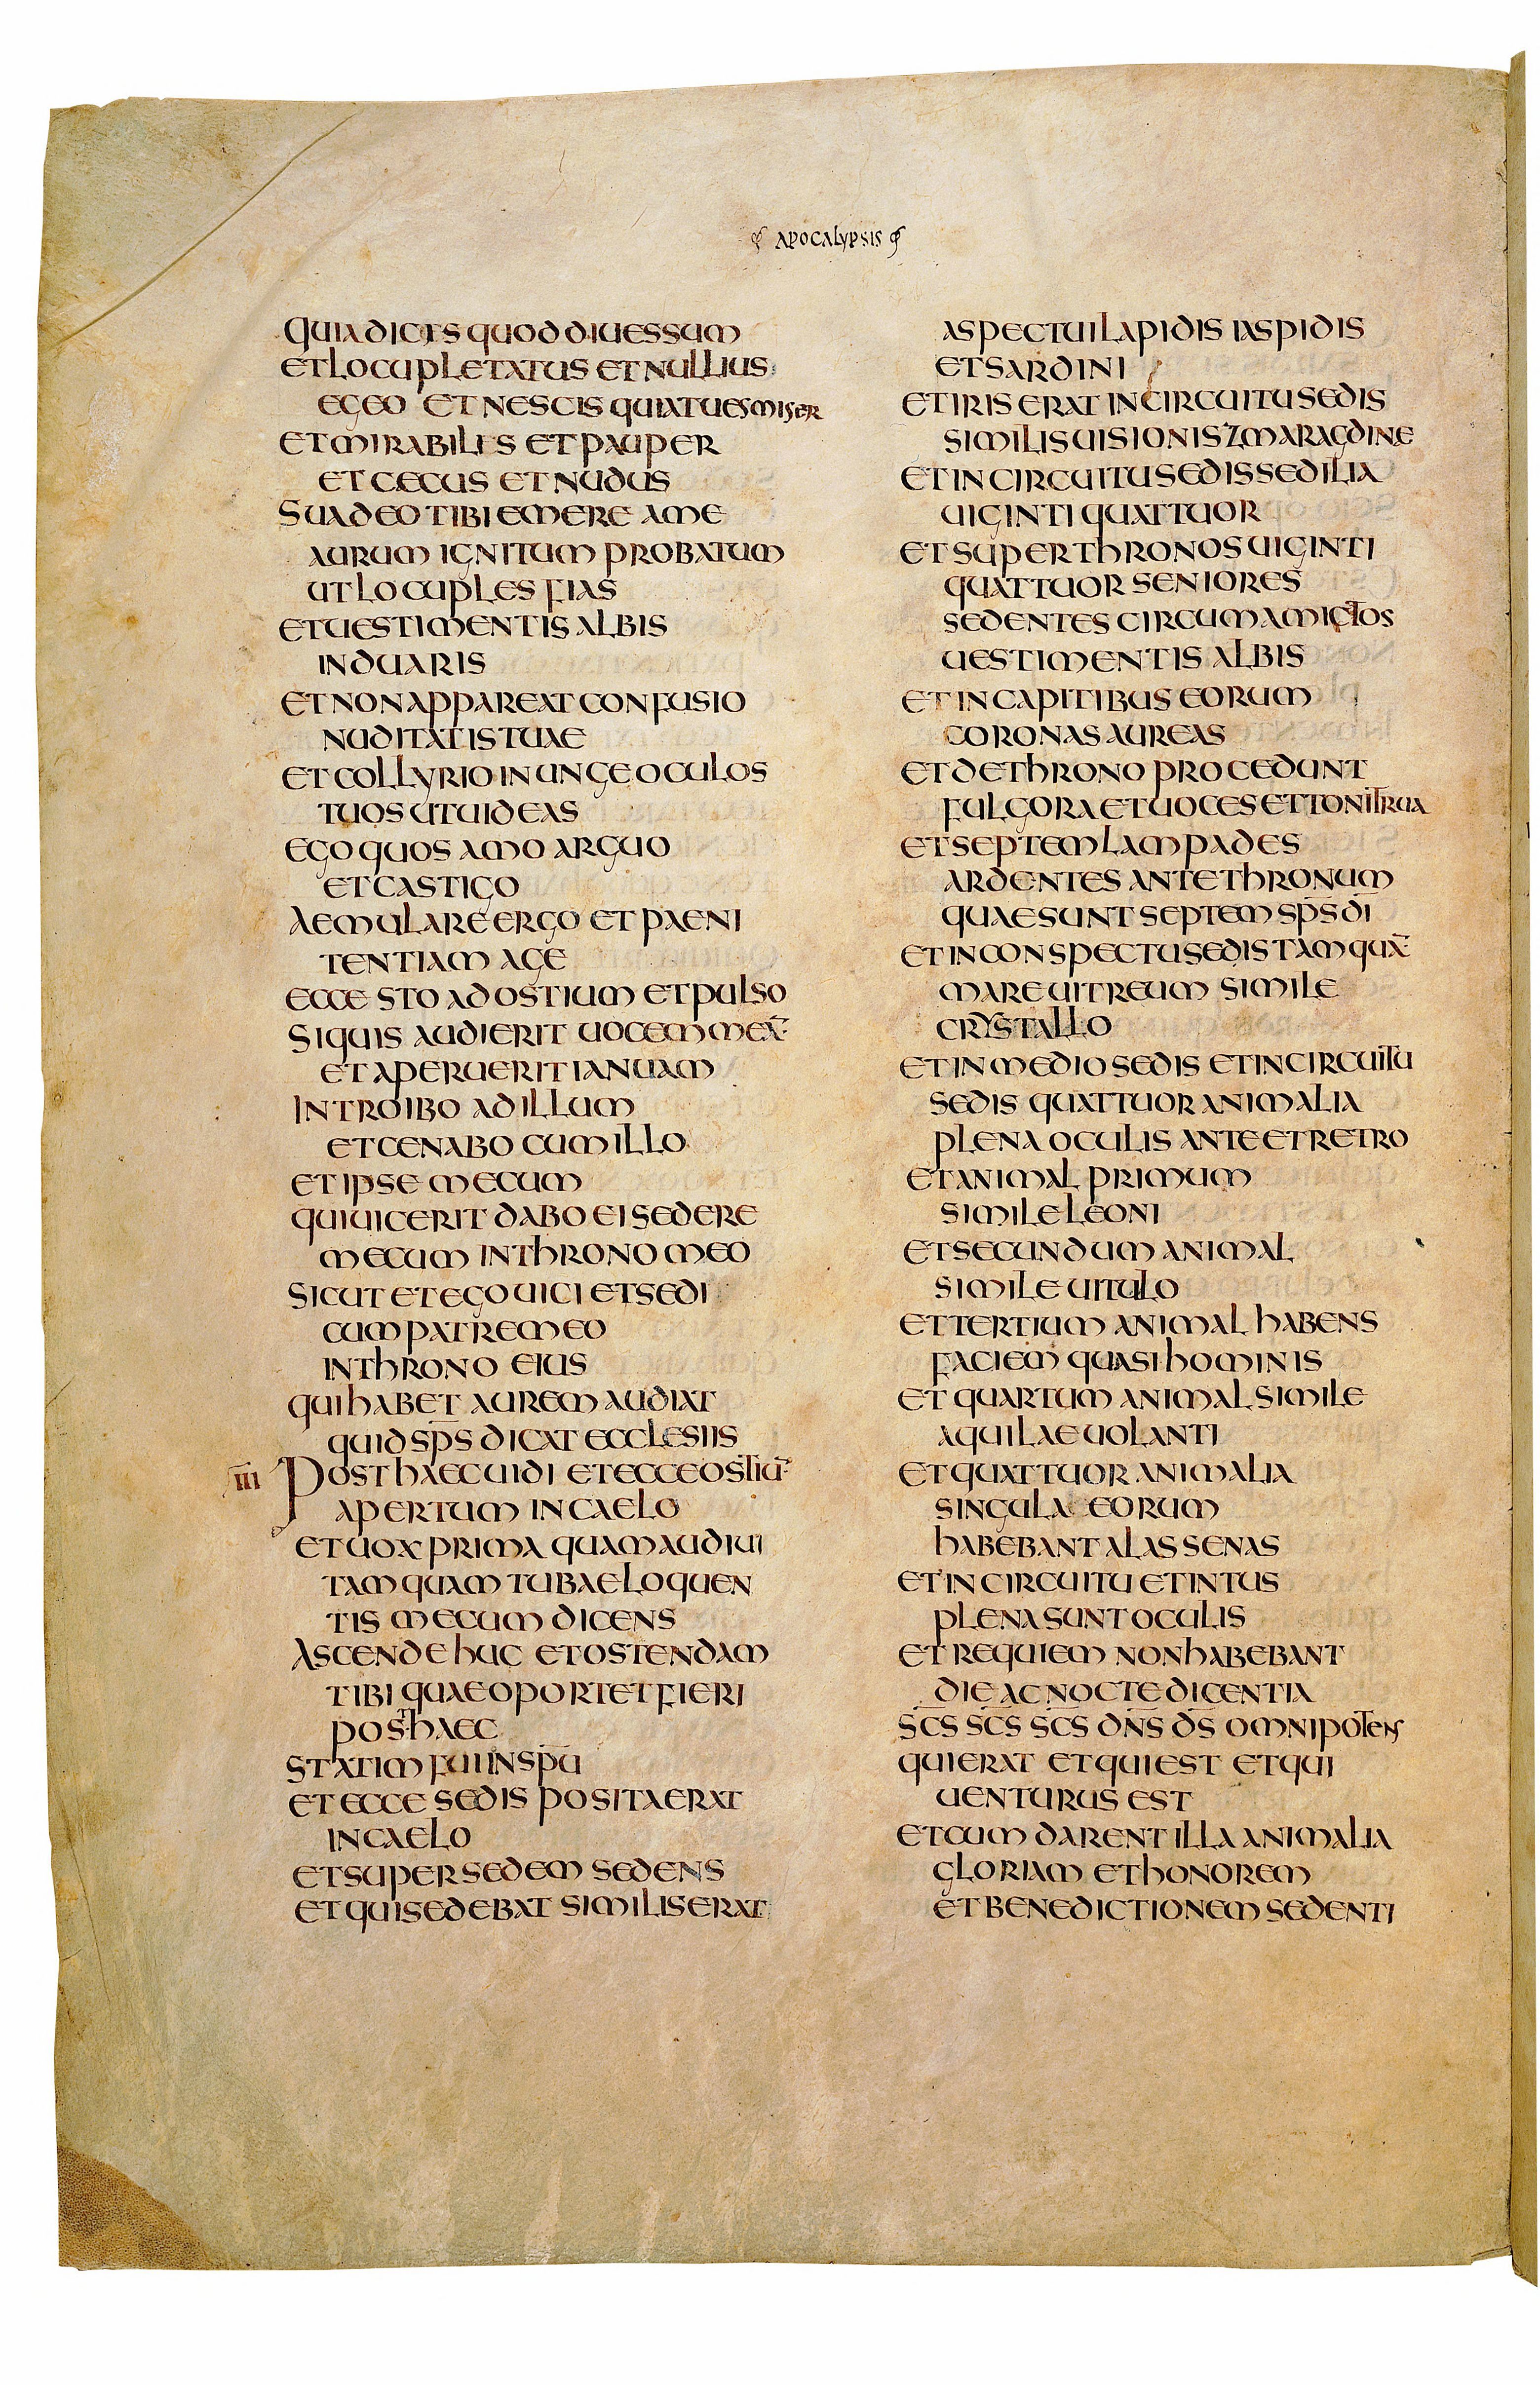 APOCALYPSIS
QUIA DICIS QUOD DIUES SUM
ET LOCUPLETATUS ET NULLIUS
EGEO ET NESCIS QUIA TU ES MISER
ET MIRABILIS ET PAUPER
ET CECUS ET NUDUS
SUADEO TIBI EMERE A ME
AURUM IGNITUM PROBATUM
UT LOCUPLES FIAS
ET UESTIMENTIS ALBIS
INDUARIS
ET NON APPAREAT CONFUSIO
NUDITATIS TUAE
ET COLLYRIO INUNGE OCULOS
TUOS UT UIDEAS
EGO QUOS AMO ARGUO
ET CASTIGO
AEMULARE ERGO ET PAENI
TENTIAM AGE
ECCE STO AD OSTIUM ET PULSO
SI QUIS AUDIERIT UOCEM MEĀ
ET APERUERIT IANUAM
INTROIBO AD ILLUM
ET CENABO CUM ILLO
ET IPSE MECUM
QUI UICERIT DABO EI SEDERE
MECUM IN THRONO MEO
SICUT ET EGO UICI ET SEDI
CUM PATRE MEO
IN THRONO EIUS
QUI HABET AUREM AUDIAT
QUID SP̅S DICAT ECCLESIIS
III POST HAEC UIDI ET ECCE OSTIŪ
APERTUM IN CAELO
ET UOX PRIMA QUAM AUDIUI
TAMQUAM TUBAE LOQUEN
TIS MECUM DICENS
ASCENDE HUC ET OSTENDAM
TIBI QUAE OPORTET FIERI
POST HAEC
STATIM FUI IN SPŪ
ET ECCE SEDIS POSITA ERAT
IN CAELO
ET SUPER SEDEM SEDENS
ET QUI SEDEBAT SIMILIS ERAT
ASPECTUI LAPIDIS IASPIDIS
ET SARDINI
ET IRIS ERAT IN CIRCUITU SEDIS
SIMILIS UISIONI SZMARAGDINE
ET IN CIRCUITU SEDIS SEDILIA
UIGINTI QUATTUOR
ET SUPER THRONOS UIGINTI
QUATTUOR SENIORES
SEDENTES CIRCUMAMICTOS
UESTIMENTIS ALBIS
ET IN CAPITIBUS EORUM
CORONAS AUREAS
ET DE THRONO PROCEDUNT
FULGORA ET UOCES ET TONITRUA
ET SEPTEM LAMPADES
ARDENTES ANTE THRONUM
QUAE SUNT SEPTEM SP̅S DĪ
ET IN CONSPECTU SEDIS TAMQUĀ
MARE UITREUM SIMILE
CRYSTALLO
ET IN MEDIO SEDIS ET IN CIRCUITU
SEDIS QUATTUOR ANIMALIA
PLENA OCULIS ANTE ET RETRO
ET ANIMAL PRIMUM
SIMILE LEONI
ET SECUNDUM ANIMAL
SIMILE UITULO
ET TERTIUM ANIMAL HABENS
FACIEM QUASI HOMINIS
ET QUARTUM ANIMAL SIMILE
AQUILAE UOLANTI
ET QUATTUOR ANIMALIA
SINGULA EORUM
HABEBANT ALAS SENAS
ET IN CIRCUITU ET INTUS
PLENA SUNT OCULIS
ET REQUIEM NON HABEBANT
DIE AC NOCTE DICENTIA
SC̅S SC̅S SC̅S DN̅S D̅S OMNIPOTENS
QUI ERAT ET QUI EST ET QUI
UENTURUS EST
ET CUM DARENT ILLA ANIMALIA
GLORIAM ET HONOREM
ET BENEDICTIONEM SEDENTI